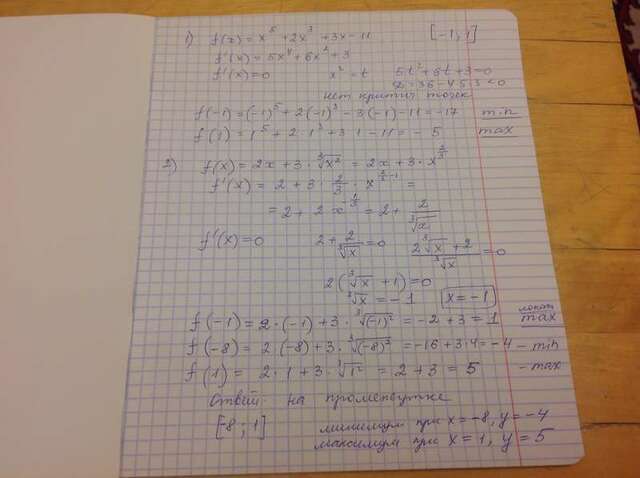 1) f(x) = x⁵ + 2x³ + 3x - 11 [-1; 1]
f'(x) = 5x⁴ + 6x² + 3
f'(x) = 0 x² = t 5t² + 6t + 3 = 0
D = 36 - 4·5·3 < 0
нет критич точек
f(-1) = (-1)⁵ + 2(-1)³ - 3(-1) - 11 = -17 min
f(1) = 1⁵ + 2·1³ + 3·1 - 11 = -5 max
2) f(x) = 2x + 3·∛x² = 2x + 3·x^(2/3)
f'(x) = 2 + 3·2/3·x^(2/3-1) =
= 2 + 2x^(-1/3) = 2 + 2/∛x
f'(x) = 0 2 + 2/∛x = 0 (2∛x + 2)/∛x = 0
2(∛x + 1) = 0
∛x = -1 x = -1
f(-1) = 2·(-1) + 3·∛(-1)² = -2 + 3 = 1 max
f(-8) = 2(-8) + 3·∛(-8)² = -16 + 3·4 = -4 - min
f(1) = 2·1 + 3·∛1² = 2 + 3 = 5 - max
Ответ: на промежутке
[-8; 1] минимум при x = -8, y = -4
максимум при x = 1, y = 5